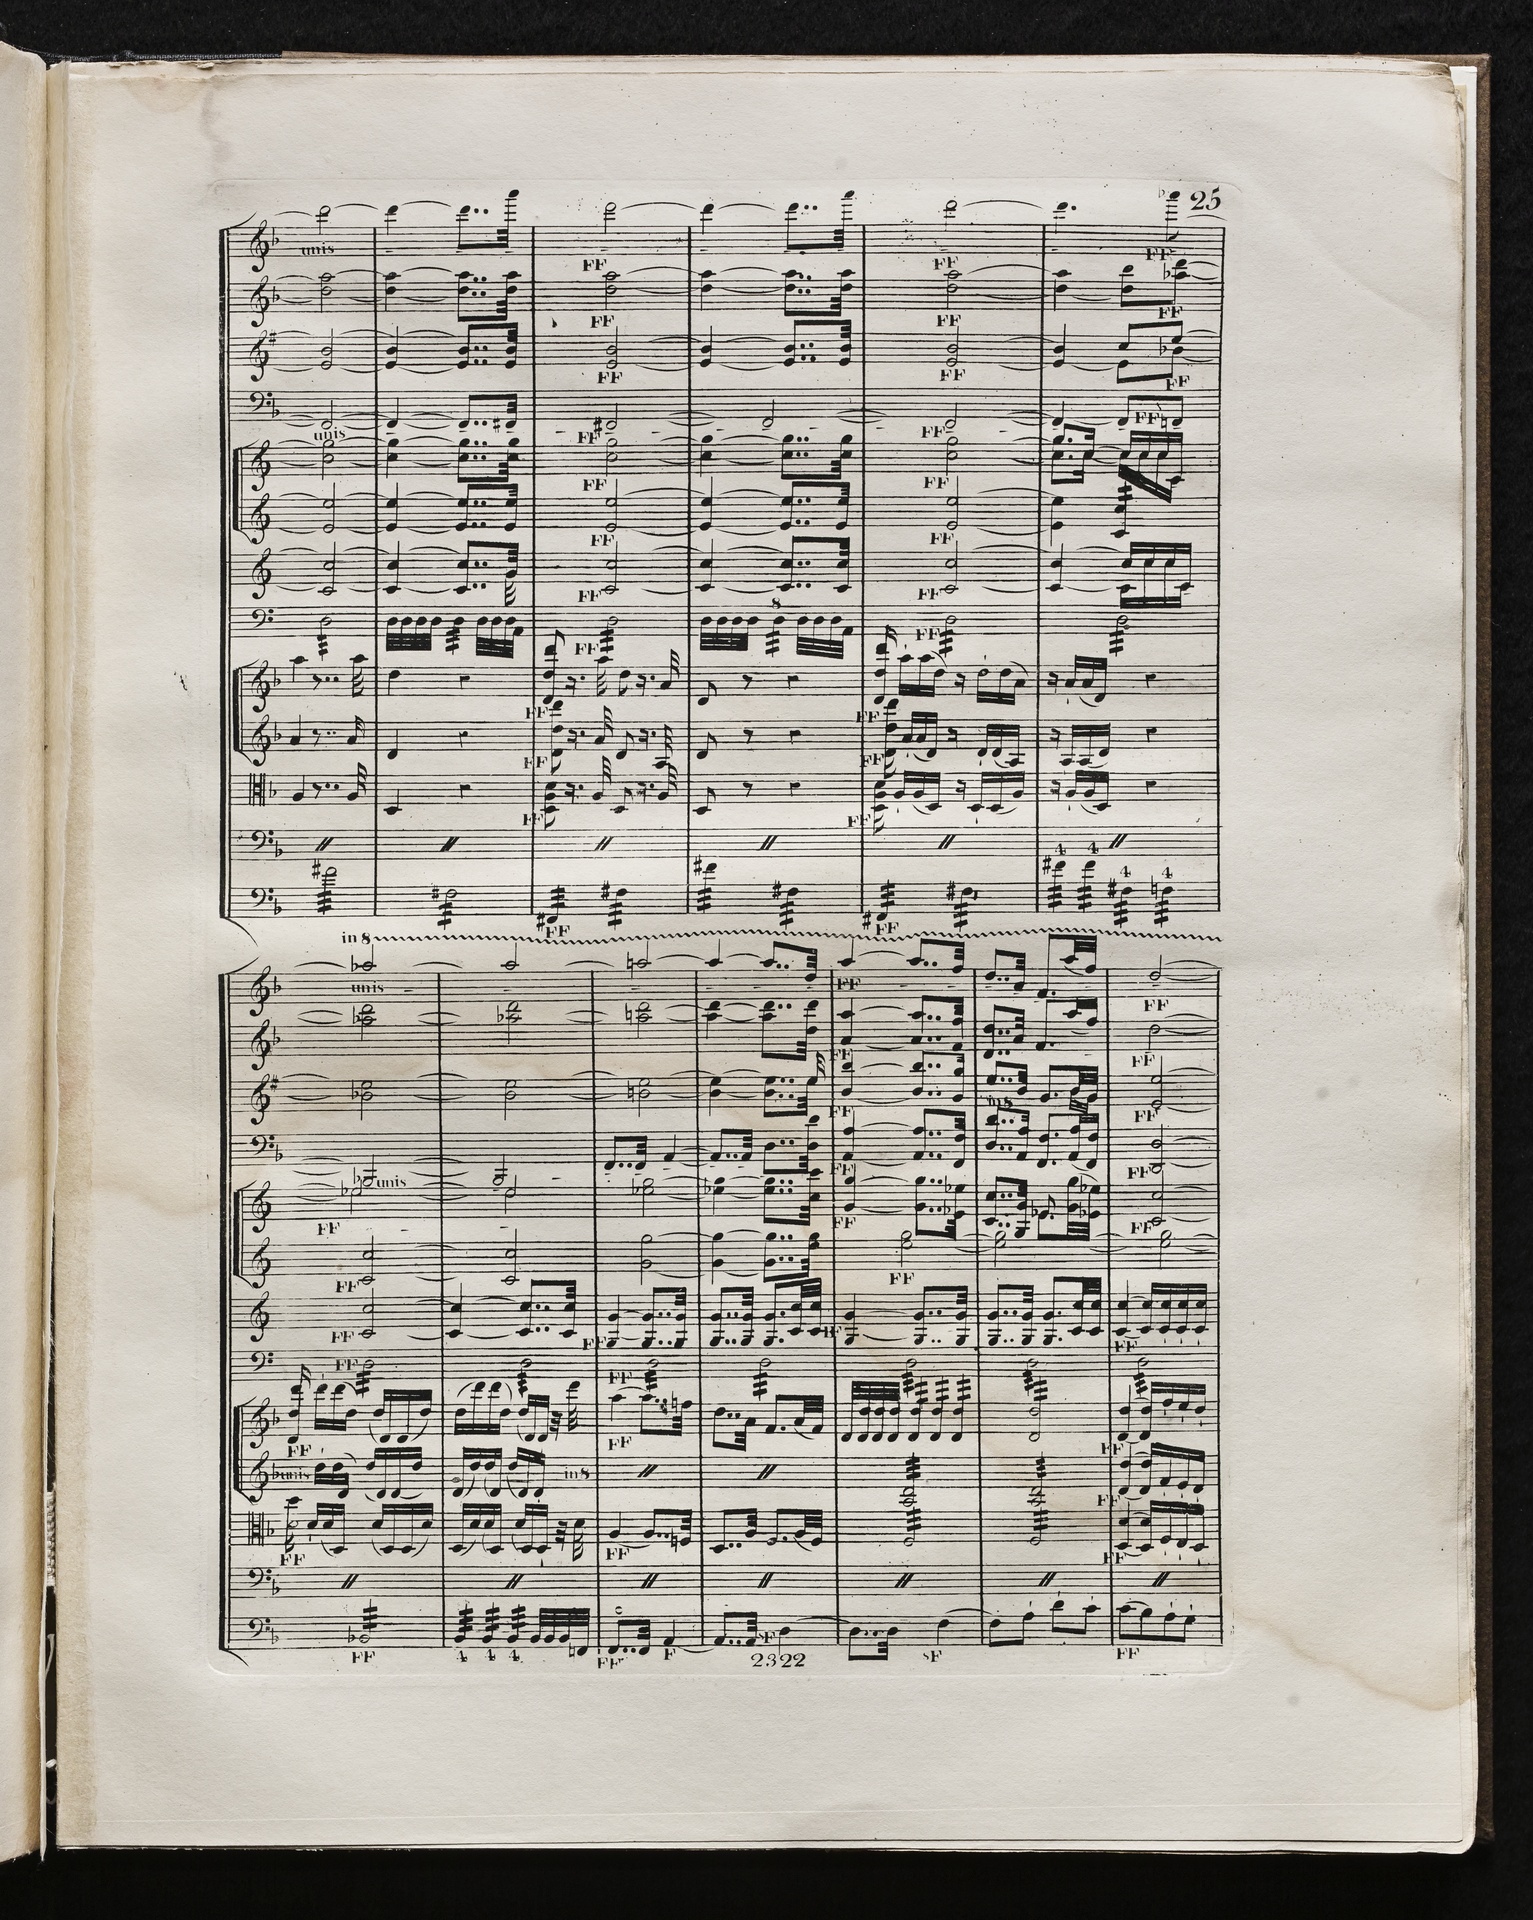 25
unis
FF
FF FF
FF
FF FF FF
FF FF
unis FF FF FF
FF FF
FF FF
FF FF
8
FF FF
FF FF
FF FF
FF FF
4 4
4 4
FF FF
in 8
unis FF
FF
FF FF
FF
in 8
FF
FF FF
unis
FF FF FF
FF FF
FF FF FF
FF
FF FF
FF FF
FF
unis in 8
FF
FF FF FF
SF
FF 4 4 4 FF F SF FF
2322